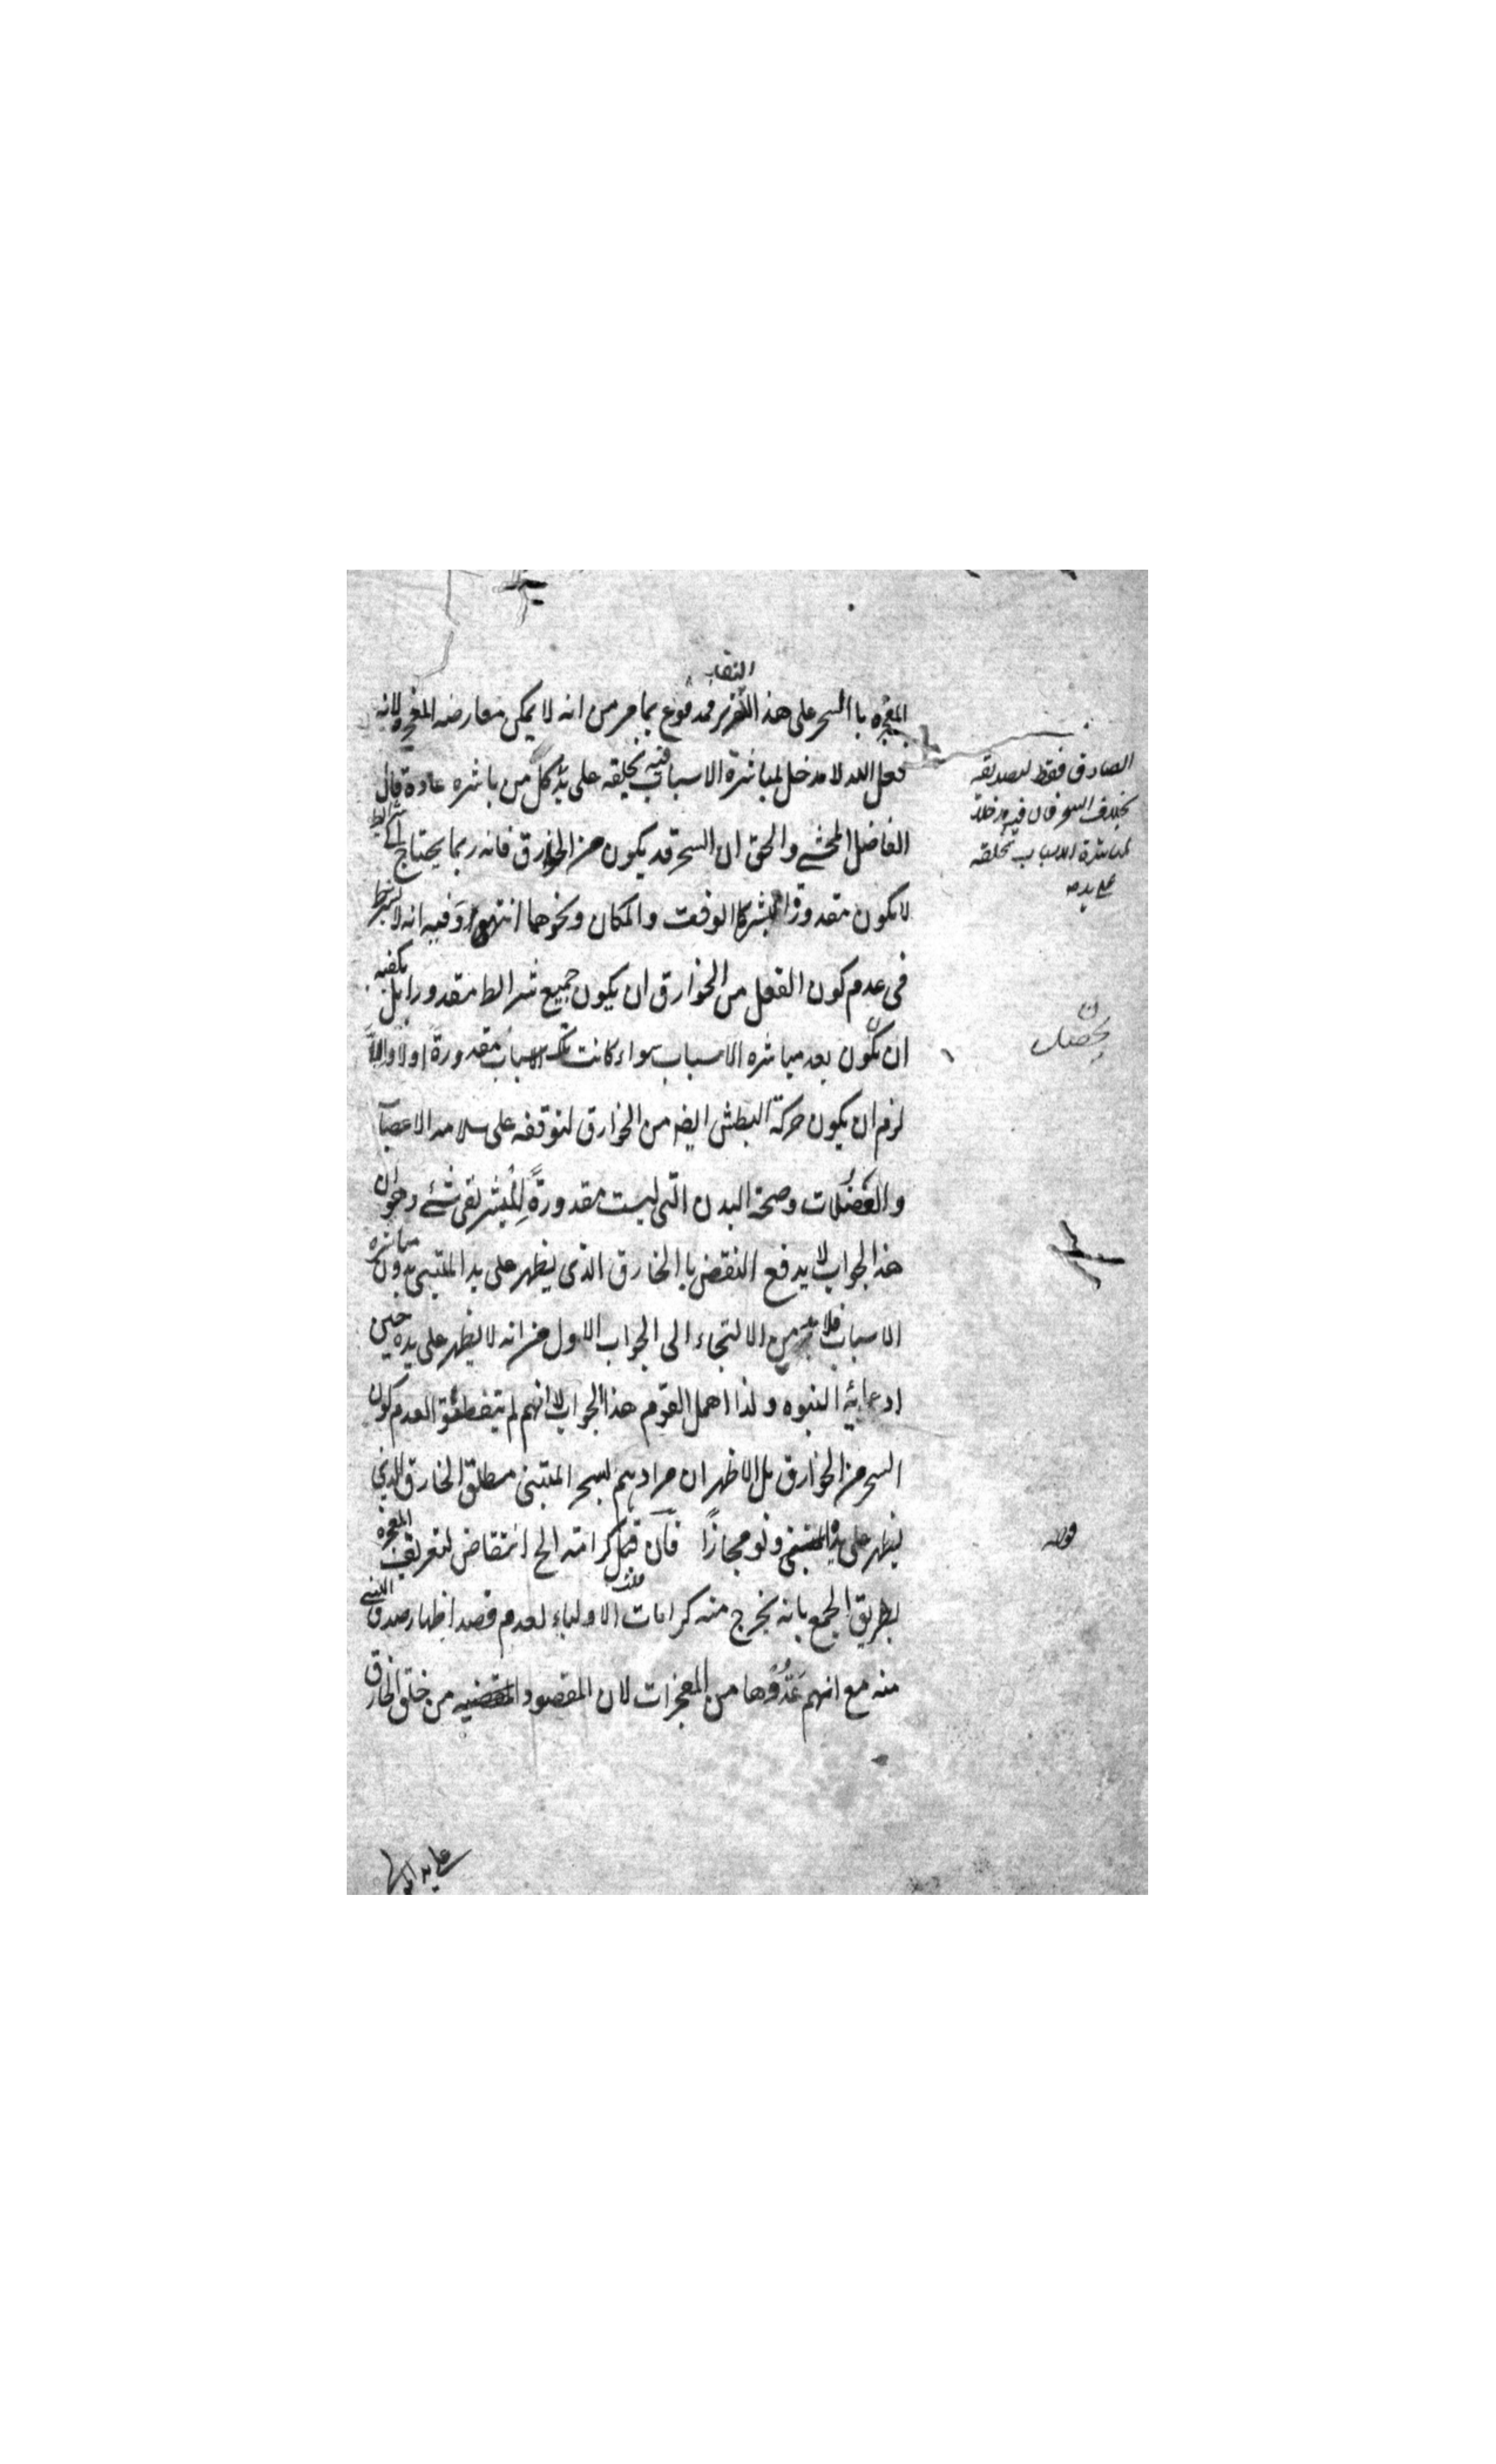 المعجزه با السحر على هذ التقرير فمدفوع بما مر من انه لا يمكن معارضه المعجزه لانه
فعل الله لا مدخل لمباشرة الاسباب فيه يخلقه على يد كل من باشره عادة قال
الفاضل المحشے والحق ان السحر قد يكون من الخوارق فانه ربما يحتاج الى شرائط
لا يكون مقدورا للبشر كالوقت والمكان ونحوهما انتهى وفيه انه لا يشترط
فى عدم كون الفعل من الخوارق ان يكون جميع شرائط مقدورا بل يكفيه
ان يكون بعد مباشره الاسباب سواء كانت تلك الاسباب مقدورة اولا والا
لزم ان يكون حركة البطش ايضا من الخوارق لتوقفه على سلامه الاعصاب
والعضلات وصحة البدن التى ليست مقدورة للبشر بقى شئ وهو ان
هذ الجواب لا يدفع النقض با الخارق الذى يظهر على يد المتنبى بدون مباشره
الاسباب فلا بد من الالتجاء الى الجواب الاول من انه لا يظهر على يده حين
ادعائه النبوه ولذا اهمل القوم هذ الجواب لا انهم لم يتفطنوا لعدم كون
السحر من الخوارق بل الاظهر ان مرادهم بسحر المتنبى مطلق الخارق الذي
يظهر على يد المتنبى ولو مجازًا فان قيل كرامته الخ انتقاض لتعريف المعجزه
بطريق الجمع بانه يخرج منه كرامات الاولياء لعدم قصد اظهار صدق النبى
منه مع انهم عدوها من المعجزات لان المقصود من خلق الخارق
الصادق فقط لتصديقه
بخلاف السحر فان فيه مدخلا
لمباشرة الاسباب يخلقه
على يده
قوله